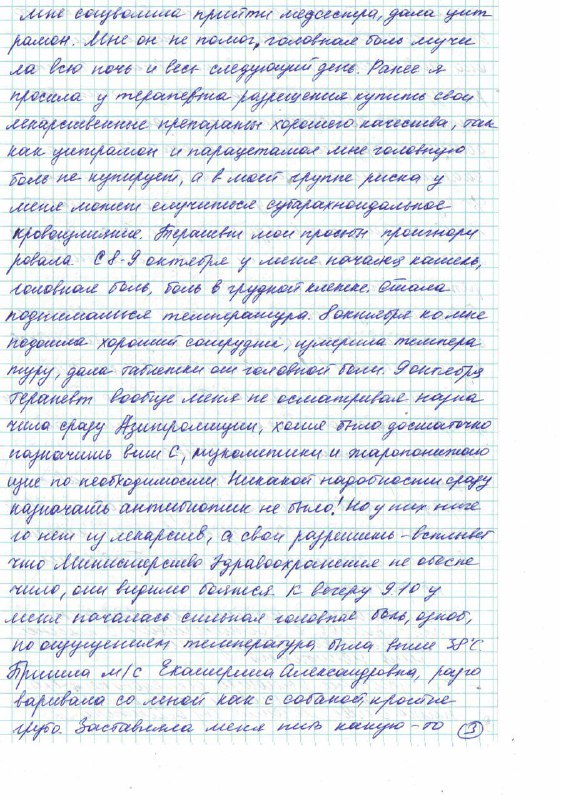 Мне соизволила прийти медсестра, дала цит
рамон. Мне он не помог, головная боль мучи
ла всю ночь и весь следующий день. Ранее я
просила у терапевта разрешения купить свои
лекарственные препараты хорошего качества, так
как цитрамон и парацетамол мне головную
боль не купирует, а в моей группе риска у
меня может случиться субарахноидальное
кровоизлияние. Терапевт мои просьбы проигнори
ровала. С 8-9 октября у меня начался кашель,
головная боль, боль в грудной клетке. Стала
подниматься температура. 8 октября ко мне
подошла хороший сотрудник, измерила темпера
туру, дала таблетки от головной боли. 9 октября
терапевт вообще меня не осматривая назна
чила сразу Азитромицин, хотя было достаточно
назначить вит С, муколитики и жаропонижаю
щие по необходимости. Никакой надобности сразу
назначать антибиотик не было! Но у них ниче
го нет из лекарств, а свои разрешить - всплывет
что Министерство Здравоохранения не обеспе
чило, они видимо боятся. К вечеру 9.10 у
меня началась сильная головная боль, озноб,
по ощущениям температура была выше 38°С.
Пришла м/с Екатерина Александровна, разго
варивала со мной как с собакой, крайне
грубо. Заставляла меня пить какую-то 3